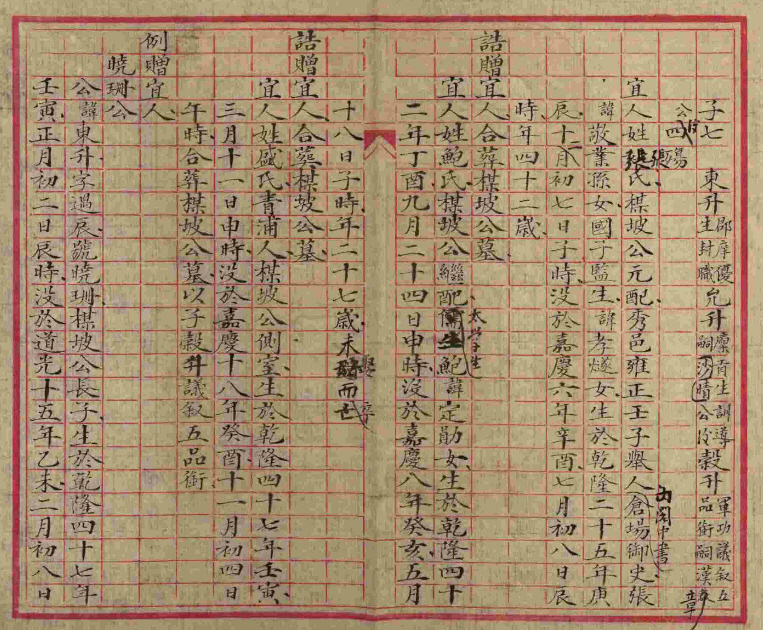 子七 東升郡庠優生封職 允升廩貢生訓導嗣湾晴公後 穀升軍功議叙五品銜嗣漢章
公四
宜人姓張氏楳坡公元配秀邑雍正壬子舉人倉場御史張
諱敬業孫女國子監生諱孝燧女生於乾隆二十五年庚
辰十二月初七日子時没於嘉慶六年辛酉七月初八日辰
時年四十二歲
誥贈宜人合葬楳坡公墓
宜人姓鮑氏楳坡公繼配太學生鮑諱定勛女生於乾隆四十
二年丁酉九月二十四日申時没於嘉慶八年癸亥五月
十八日子時年二十七歲未而
誥贈宜人合葬楳坡公墓
宜人姓盛氏青浦人楳坡公側室生於乾隆四十七年壬寅
三月十一日申時没於嘉慶十八年癸酉十一月初四日
午時合葬楳坡公墓以子穀升議叙五品銜
例贈宜人
曉珊公
公諱東升字遇辰號曉珊楳坡公長子生於乾隆四十七年
壬寅正月初二日辰時没於道光十五年乙未二月初八日